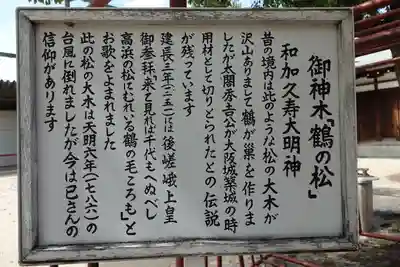 御神木「鶴の松」
和加久寿大明神
昔の境内は此のような松の大木が
沢山ありまして鶴が巣を作りま
したが太閤秀吉公が大阪城築城の時
用材として切りとられたとの伝説
が残っています
建長三年(一二五一)は後嵯峨上皇
御参拝「来て見れば千代もへぬべし
高浜の松にむれいる鶴の毛ごろも」と
お歌をよまれました
此の松の大木は天明六年(一七八六)の
台風に倒れましたが今は巳さんの
信仰があります